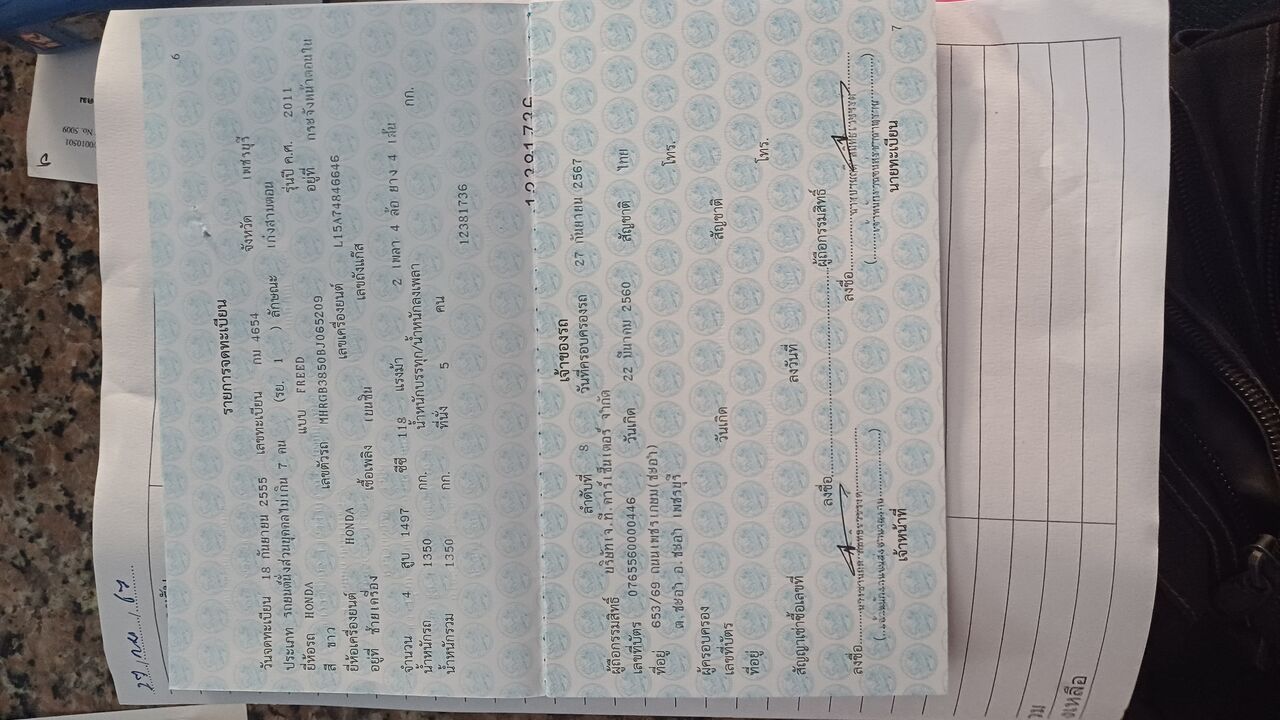 6
รายการจดทะเบียน
วันจดทะเบียน 18 กันยายน 2555 เลขทะเบียน กม 4654 จังหวัด เพชรบุรี
ประเภท รถยนต์นั่งส่วนบุคคลไม่เกิน 7 คน (รย. 1 ) ลักษณะ เก๋งสามตอน
ยี่ห้อรถ HONDA แบบ FREED รุ่นปี ค.ศ. 2011
สี ขาว เลขตัวรถ MHRGB3850BJ065209 อยู่ที่
ยี่ห้อเครื่องยนต์ HONDA เลขเครื่องยนต์ L15A74846646
อยู่ที่ ซ้ายเครื่อง เชื้อเพลิง เบนซิน เลขถังแก๊ส
จำนวน 4 สูบ 1497 ซีซี 118 แรงม้า 2 เพลา 4 ล้อ ยาง 4 เส้น
น้ำหนักรถ 1350 กก. น้ำหนักบรรทุก/น้ำหนักลงเพลา กก.
น้ำหนักรวม 1350 กก. ที่นั่ง 5 คน
12381736
12381736
เจ้าของรถ
ลำดับที่ 8 วันที่ครอบครองรถ 27 กันยายน 2567
ผู้ถือกรรมสิทธิ์ บริษัทเจ.ที.คาร์เซ็นเตอร์ จำกัด
เลขที่บัตร 0765560000446 วันเกิด 22 มีนาคม 2560 สัญชาติ ไทย
ที่อยู่ 653/69 ถนนเพชรเกษม(ชะอำ) โทร.
ต.ชะอำ อ.ชะอำ เพชรบุรี
ผู้ครอบครอง
เลขที่บัตร วันเกิด สัญชาติ
ที่อยู่ โทร.
สัญญาเช่าซื้อเลขที่ ลงวันที่
ลงชื่อ ผู้ถือกรรมสิทธิ์
ลงชื่อ ลงชื่อ
เจ้าหน้าที่ นายทะเบียน
7
0010501
No. 5009